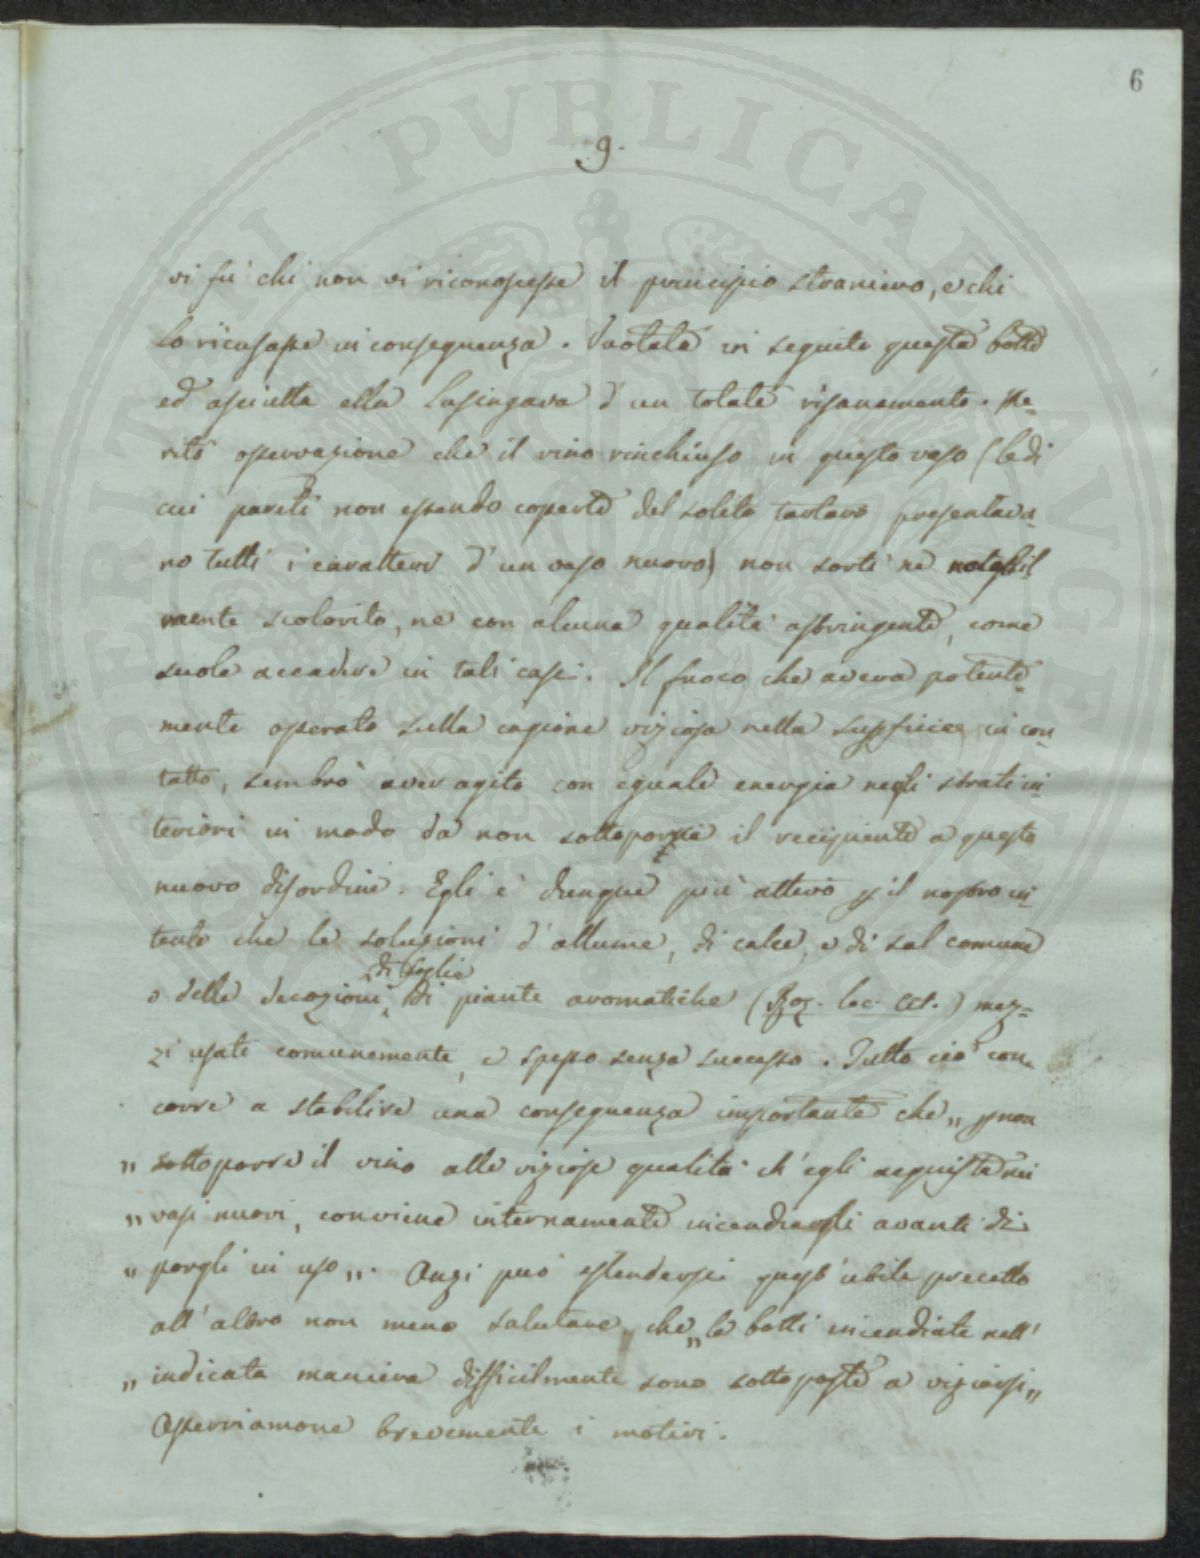 6
9.
vi fù chi non vi riconoscesse il principio straniero, e chi
lo ricusasse in conseguenza. Vuotata in seguito questa botte
ed asciutta ella lusingava d'un totale risanamento. Me-
ritò osservazione che il vino rinchiuso in questo vaso (le di
cui pareti non essendo coperte del solito tartaro presentava-
no tutti i caratteri d'un vaso nuovo) non sortì nè notabil
mente scolorito, nè con alcuna qualità astringente, come
suole accadere in tali casi. Il fuoco che aveva potente-
mente operato sulla cagione viziosa nella supficie in con-
tatto, sembrò aver agito con eguale energia negli strati in-
teriori in modo da non sottoporre il recipiente a questo
nuovo disordine. Egli è dunque più attivo p il nostro in-
tento che le soluzioni d'allume, di calce, e di sal comune
di foglie
o delle decozioni di piante aromatiche (Roz. loc. cit.) mez-
zi usati comunemente, e spesso senza successo. Tutto ciò con-
corre a stabilire una conseguenza importante che „ p non
„ sottoporre il vino alle viziose qualità ch'egli acquista nei
„ vasi nuovi, conviene internamente incendiargli avanti di
„ porgli in uso „. Anzi può estendersi quest'utile precetto
all'altro non meno salutare, che „ le botti incendiate nell'
„ indicata maniera difficilmente sono sottoposte a viziarsi „
Osserviamone brevemente i motivi.
PERITATI PVBLICAE AVGENDAE